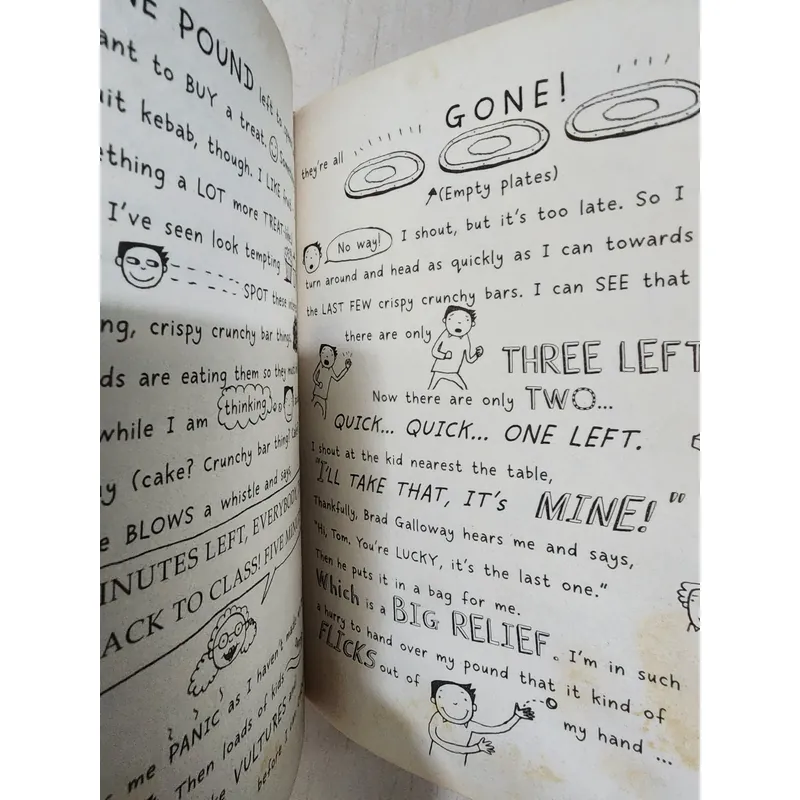 NE POUND left to
ant to BUY a treat.
uit kebab, though. I LIKE
ething a LOT more TREAT-
I've seen look tempting
SPOT these
ng, crispy crunchy bar things.
ds are eating them so they
while I am thinking
y (cake? Crunchy bar thing?
e BLOWS a whistle and says,
INUTES LEFT, EVERYBODY.
ACK TO CLASS! FIVE MINU
s me PANIC as I haven't made
Then loads of kids
ke VULTURES and
before I
they're all GONE!
(Empty plates)
No way! I shout, but it's too late. So I
turn around and head as quickly as I can towards
the LAST FEW crispy crunchy bars. I can SEE that
there are only THREE LEFT
Now there are only TWO...
QUICK... QUICK... ONE LEFT.
I shout at the kid nearest the table,
"I'LL TAKE THAT, IT'S MINE!"
Thankfully, Brad Galloway hears me and says,
"Hi, Tom. You're LUCKY, it's the last one."
Then he puts it in a bag for me.
Which is a BIG RELIEF. I'm in such
a hurry to hand over my pound that it kind of
FLICKS out of my hand ...